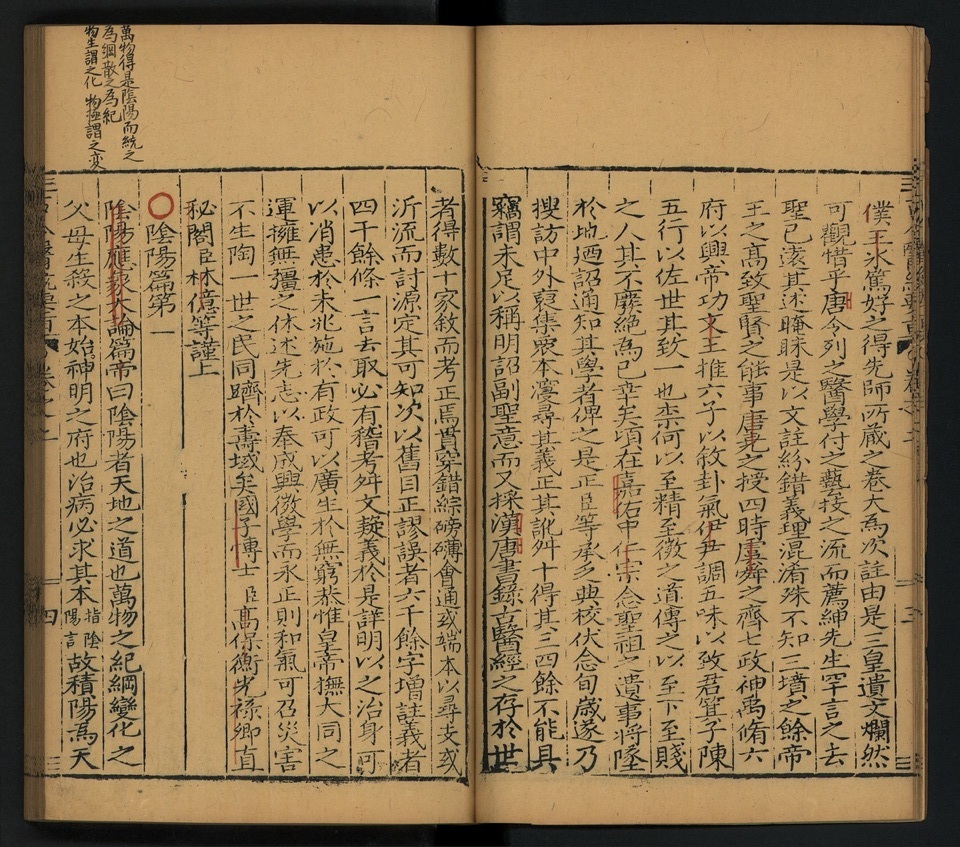 僕王氷篤好之得先師所蔵之卷大為次註由是三皇遺文爛然
可觀惜乎唐令列之醫學付之藝技之流而薦紳先生罕言之去
聖已遠其述晻昧是以文註紛錯義理混淆殊不知三墳之餘帝
王之高致聖賢之能事唐尭之授四時虞舜之齊七政神禹脩六
府以興帝功文王推六子以敘卦氣伊尹調五味以致君箕子陳
五行以佐世其致一也柰何以至精至微之道傳之以至下至賤
之人其不廢絶為已幸矣頃在嘉佑中仁宗念聖祖之遺事將墜
於地迺詔通知其學者俾之是正臣等承乏典校伏念旬歲遂乃
搜訪中外裒集衆本寖尋其義正其訛舛十得其三四餘不能具
竊謂未足以稱明詔副聖意而又採漢唐書録古醫經之存於世
者得數十家敘而考正焉貫穿錯綜磅礴會通或端本以尋支或
泝流而討源定其可知次以舊目正謬誤者六千餘字增註義者
四千餘條一言去取必有稽考舛文疑義於是詳明以之治身可
以消患於未兆施於有政可以廣生於無窮恭惟皇帝撫大同之
運擁無疆之休述先志以奉成興微學而永正則和氣可召災害
不生陶一世之民同躋於壽域矣國子博士臣髙保衡光祿卿直
秘閣臣林億等謹上
陰陽篇第一
陰陽應象大論篇帝曰陰陽者天地之道也萬物之紀綱變化之
父母生殺之本始神明之府也治病必求其本指陰陽言故積陽爲天
萬物得是陰陽而統之
為綱散之為紀
物生謂之化 物極謂之変
四
三